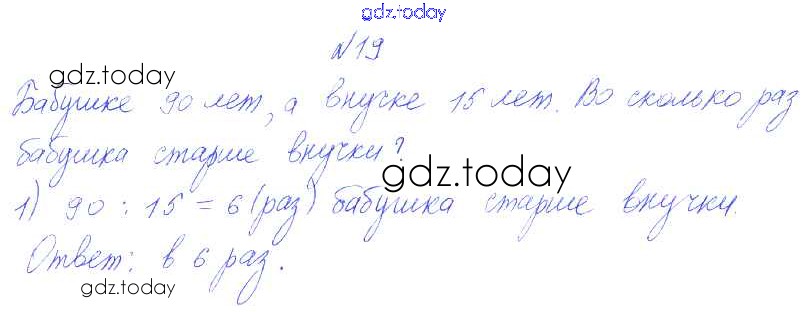 gdz.today
№19
gdz.today
Бабушке 90 лет, а внучке 15 лет. Во сколько раз
бабушка старше внучки?
gdz.today
1) 90 : 15 = 6 (раз) бабушка старше внучки.
Ответ: в 6 раз.
gdz.today